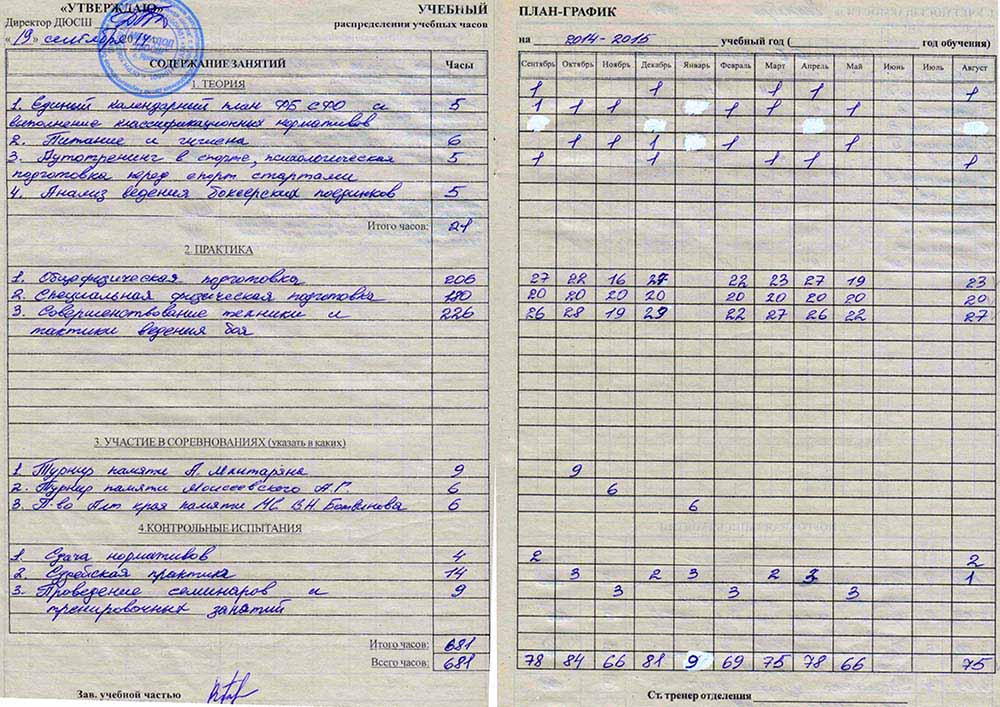 «УТВЕРЖДАЮ» УЧЕБНЫЙ
Директор ДЮСШ распределения учебных часов
«19» сентября 2014
СОДЕРЖАНИЕ ЗАНЯТИЙ Часы
1. ТЕОРИЯ
1. Единый календарний план ФБ СФО и 5
выполнение классификационных нормативов
2. Питание и гигиена 6
3. Аутотренинг в спорте, психологическая 5
подготовка перед спорт стартами
4. Анализ ведения боксерских поединков 5
Итого часов: 21
2. ПРАКТИКА
1. Общефизическая подготовка 206
2. Специальная физическая подготовка 180
3. Совершенствование техники и 226
тактики ведения боя
3. УЧАСТИЕ В СОРЕВНОВАНИЯХ (указать в каких)
1. Турнир памяти А. Мхитаряна 9
2. Турнир памяти Моисеевского А.Г 6
3. П-во Алт края памяти МС В.Н. 6
4. КОНТРОЛЬНЫЕ ИСПЫТАНИЯ
1. Сдача нормативов 4
2. Судейская практика 14
3. Проведение семинаров и 9
тренировочных занятий
Итого часов: 681
Всего часов: 681
Зав. учебной частью
ПЛАН-ГРАФИК
на 2014-2015 учебный год ( год обучения)
Сентябрь Октябрь Ноябрь Декабрь Январь Февраль Март Апрель Май Июнь Июль Август
1 1 1 1 1
1 1 1 1 1 1
1 1 1 1 1 1
1 1 1 1 1
27 22 16 27 22 23 27 19 23
20 20 20 20 20 20 20 20 20
26 28 19 29 22 27 26 22 27
9
6
6
2 2
3 2 3 2 3 1
3 3 3
78 84 66 81 9 69 75 78 66 75
Ст. тренер отделения